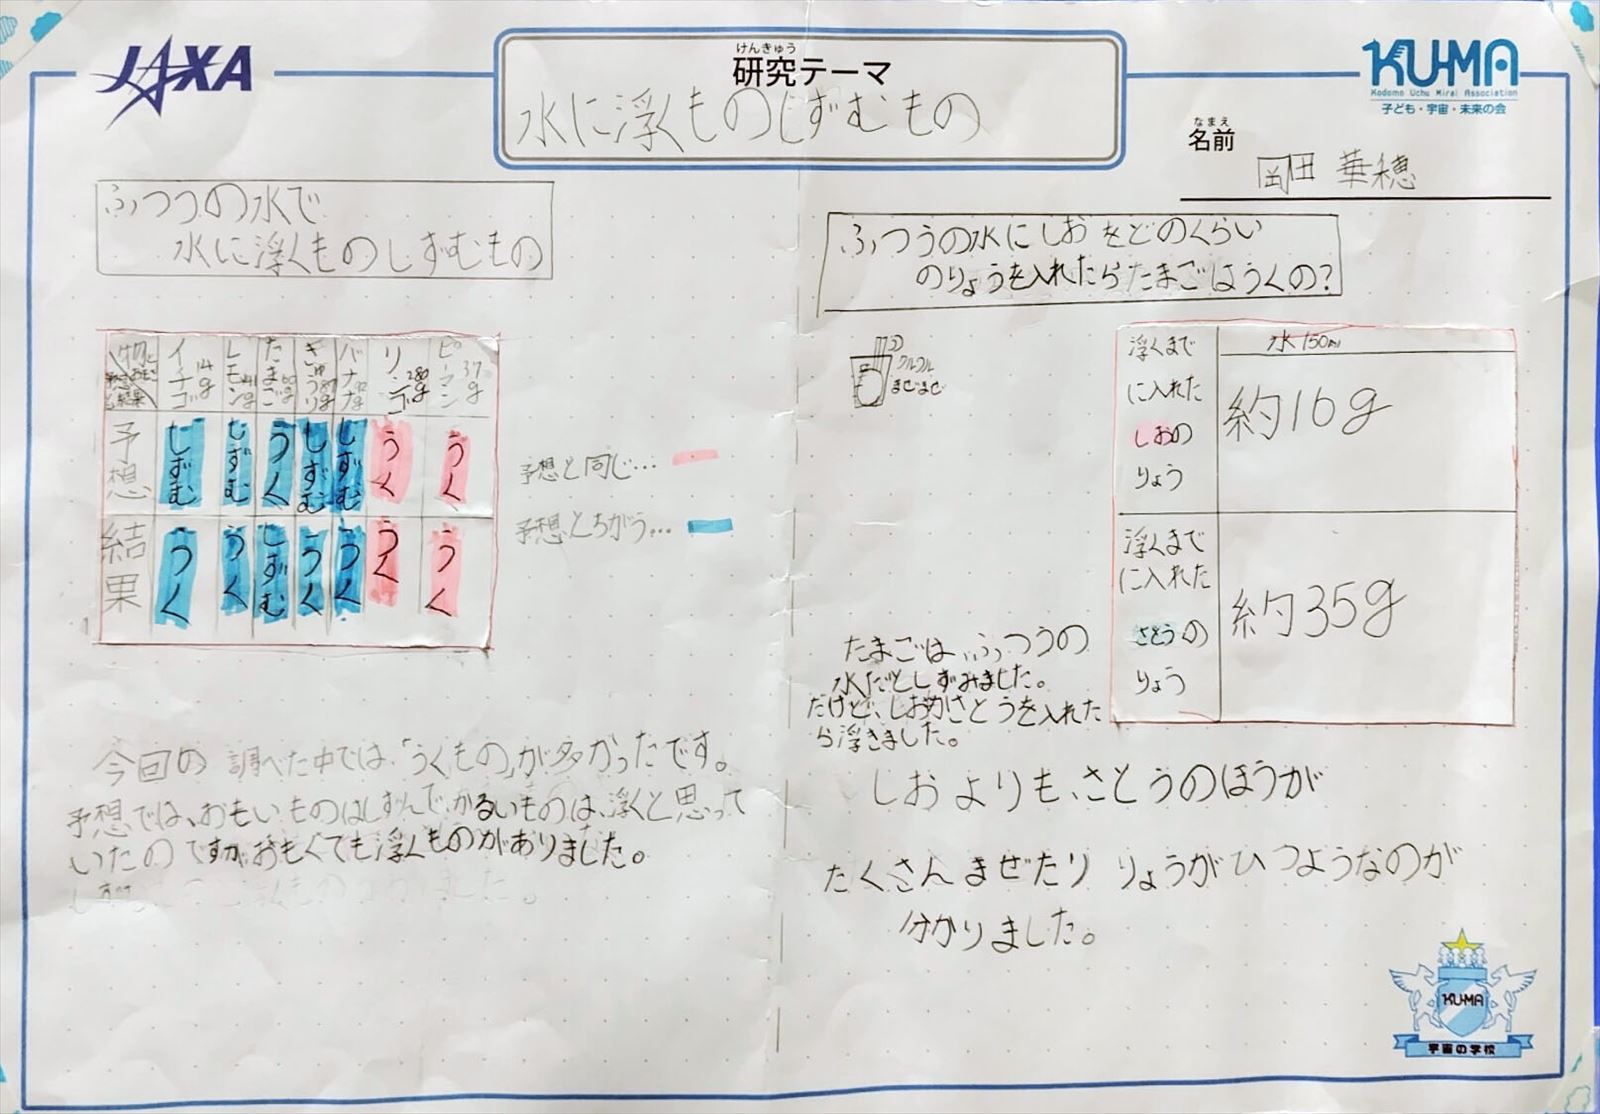 JAXA
けんきゅう
研究テーマ
水に浮くものしずむもの
KU-MA
Kodomo Uchu Mirai Association
子ども・宇宙・未来の会
なまえ
名前
岡田 華穂
ふつうの水で
水に浮くものしずむもの
物
予想
結果
イチゴ 14g
レモン
たまご 60g
きゅうり
バナナ
リンゴ 280g
ピーマン 37g
予想
しずむ
しずむ
うく
しずむ
しずむ
うく
うく
結果
うく
うく
しずむ
うく
うく
うく
うく
予想と同じ…
予想とちがう…
今回の調べた中では、「うくもの」が多かったです。
予想では、おもいものはしずんで、かるいものは、浮くと思って
いたのですが、おもくても浮くものがありました。
ふつうの水にしおをどのくらい
のりょうを入れたらたまごはうくの?
クルクル
まぜまぜ
浮くまで
に入れた
しおの
りょう
水150ml
約16g
浮くまで
に入れた
さとうの
りょう
約35g
たまごは、ふつうの
水だとしずみました。
だけど、しおやさとうを入れた
ら浮きました。
しおよりも、さとうのほうが
たくさんまぜたり りょうがひつようなのが
分かりました。
KU-MA
宇宙の学校